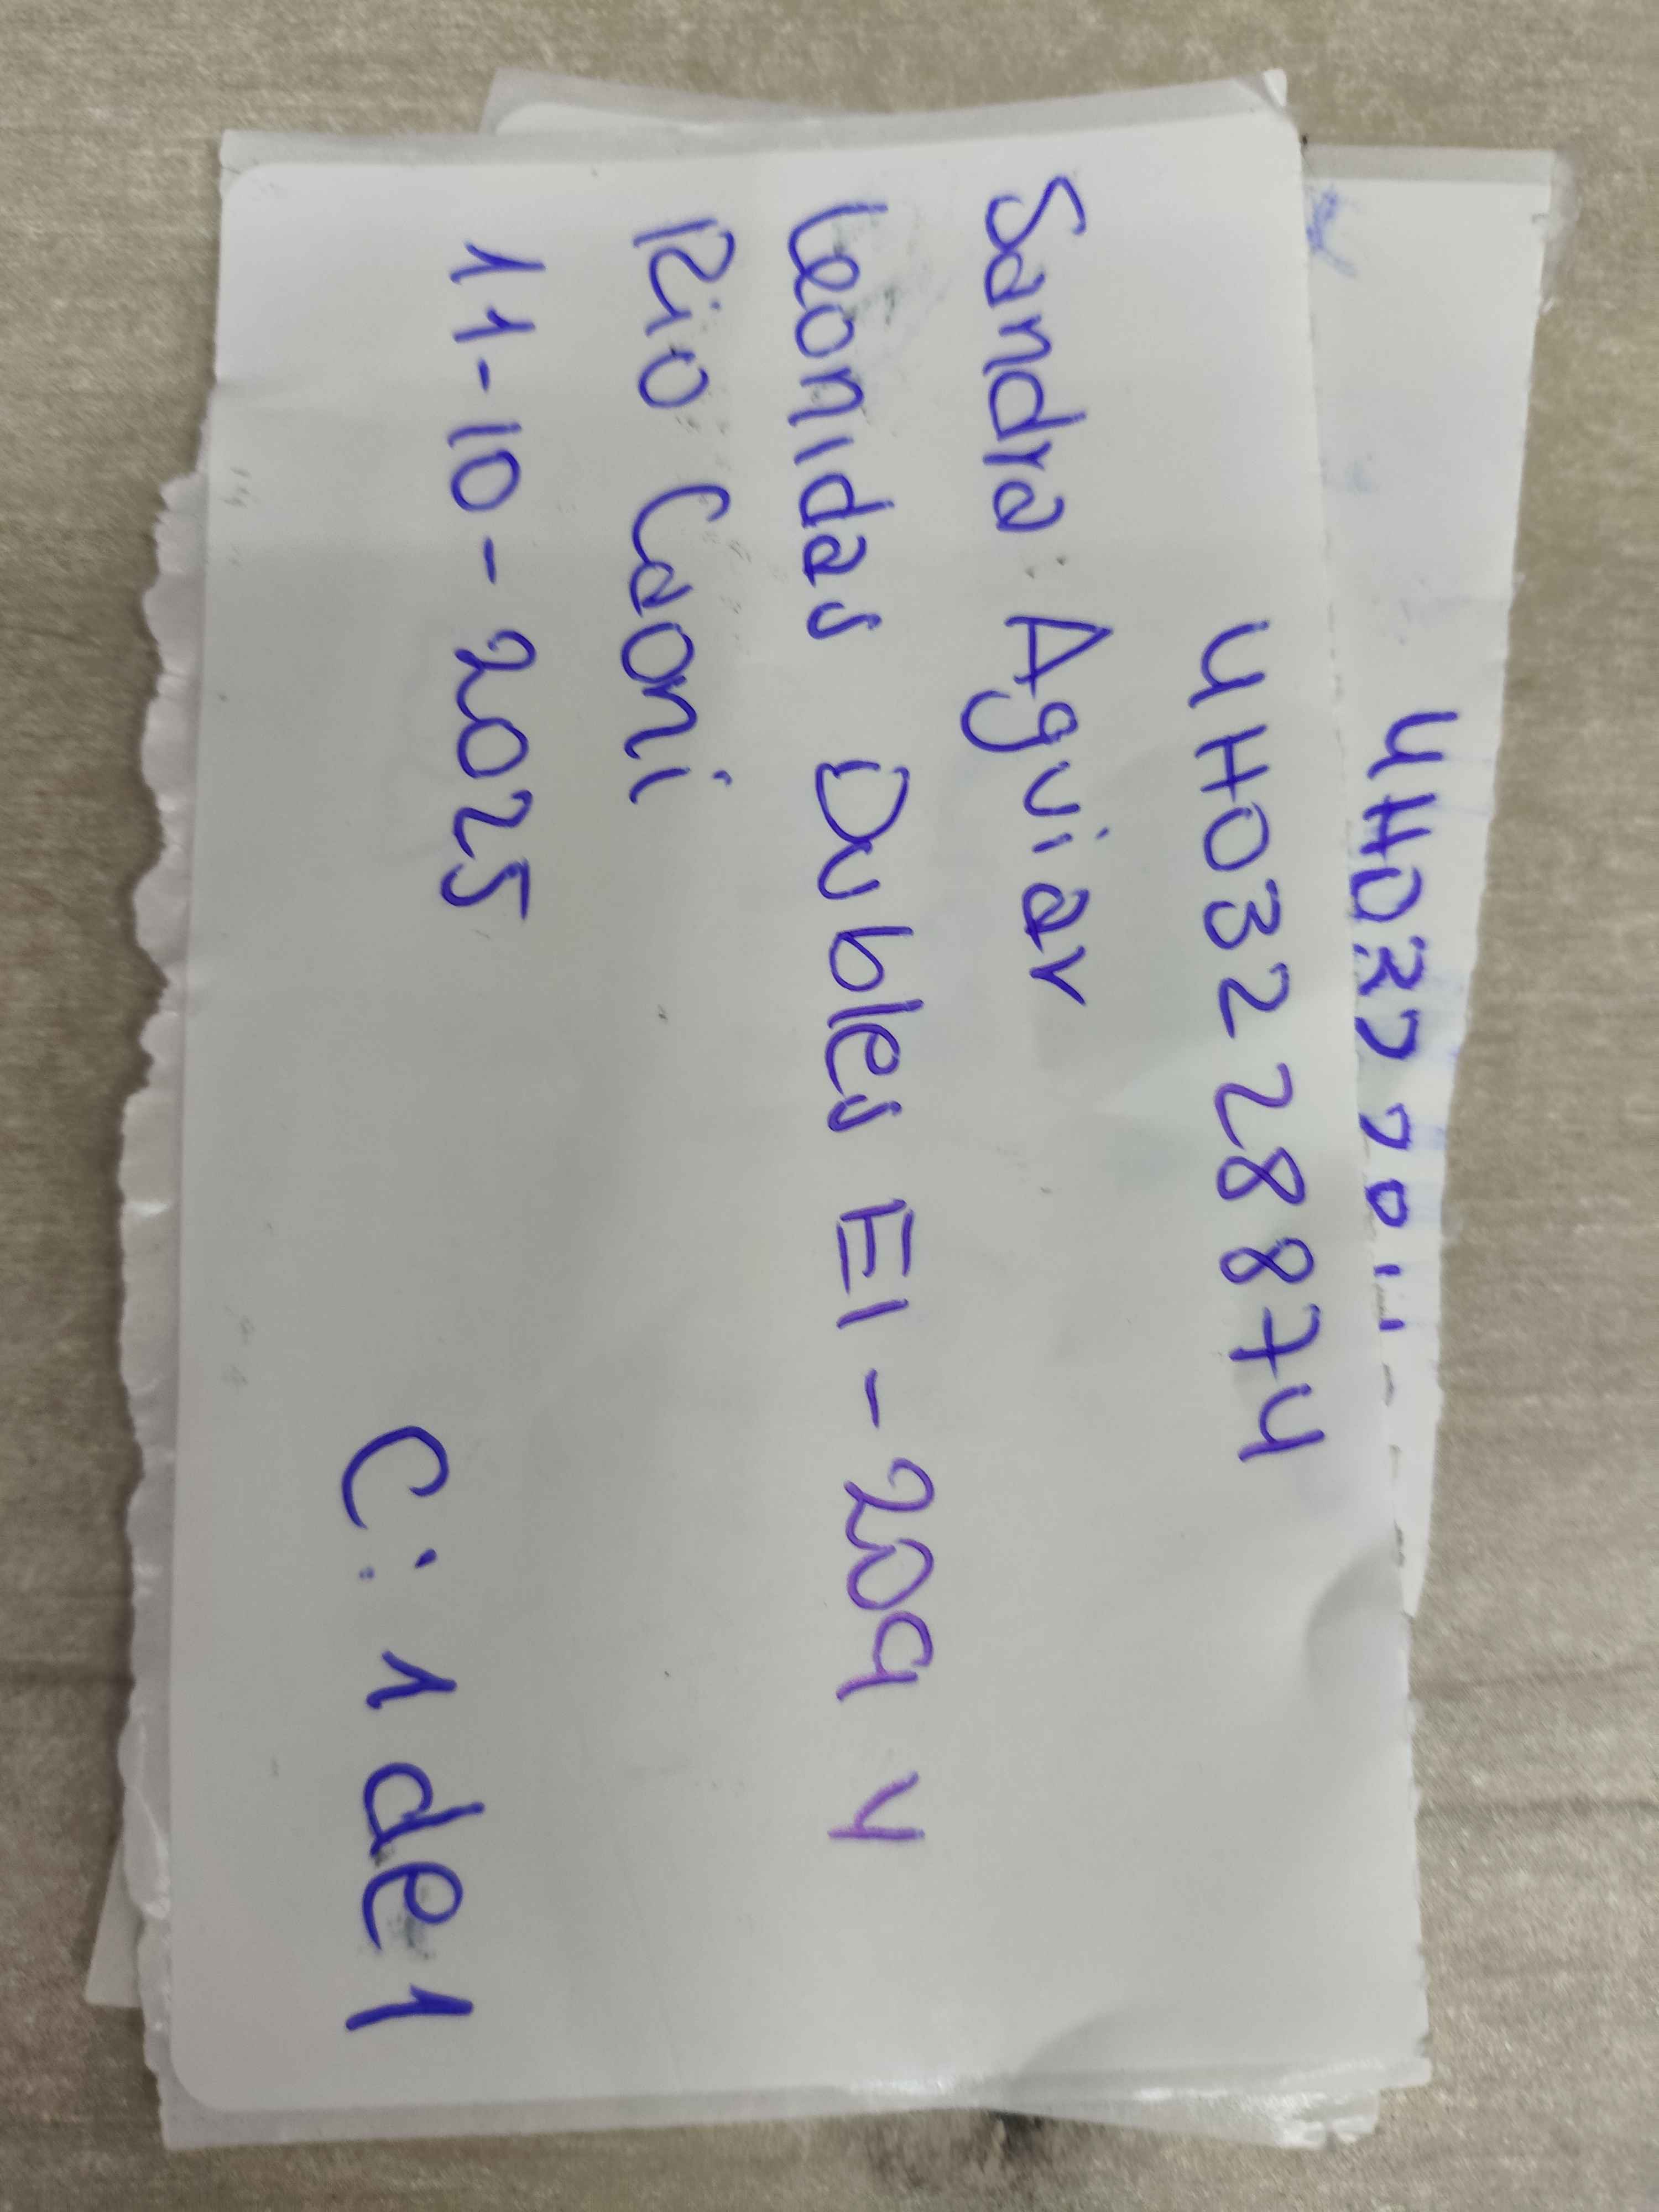 UH03228874
Sandra Aguiar
Leonidas Dubles E1-209 y
Rio Caoni
11-10-2025
C: 1 de 1